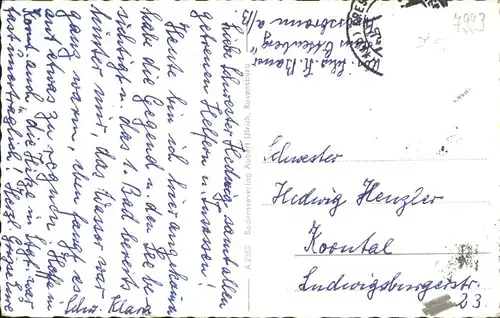 Liebe Schwester Hedwig samt allen
getreuen Helfern u. Insassen!
Heute bin ich hier angekommen
habe die Gegend u. den See be-
sichtigt u. das 1. Bad bereits
hinter mir, das Wasser war
ganz warm, eben fängt es
auch etwas zu regnen. Hoffe in
Korntal auch die Hitze in Stgt. war
unerträglich! Herzl. Grüße Eure
Schw. Klara
A 2380 Bodenseeverlag Aubert Ulrich, Ravensburg
7993
Schwester
Hedwig Henzler
Korntal
Ludwigsburgerstr.
23.